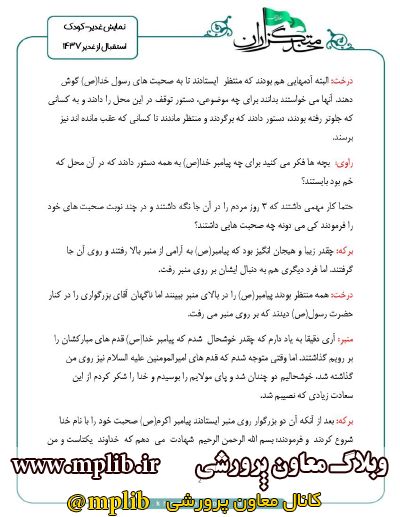 نمایش غدیر-کودک
استقبال از غدیر ۱۴۳۷
خدمتگزاران
درخت: البته آدمهایی هم بودند که منتظر ایستادند تا به صحبت های رسول خدا(ص) گوش
دهند. آنها می خواستند بدانند برای چه موضوعی، دستور توقف در این محل را دادند و به کسانی
که جلوتر رفته بودند، دستور دادند که برگردند و منتظر ماندند تا کسانی که عقب مانده اند نیز
برسند.
راوی: بچه ها فکر می کنید برای چه پیامبر خدا(ص) به همه دستور دادند که در آن محل که
خم بود بایستند؟
حتما کار مهمی داشتند که ۳ روز مردم را در آن جا نگه داشتند و در چند نوبت صحبت های خود
را فرمودند کی می دونه چه صحبت هایی داشتند؟
برکه: چقدر زیبا و هیجان انگیز بود که پیامبر(ص) به آرامی از منبر بالا رفتند و روی آن جا
گرفتند. اما فرد دیگری هم به دنبال ایشان بر روی منبر رفت.
درخت: همه منتظر بودند پیامبر(ص) را در بالای منبر ببینند اما ناگهان آقای بزرگواری را در کنار
حضرت رسول(ص) دیدند که بر روی منبر می رفت.
منبر: آری دقیقا به یاد دارم که چقدر خوشحال شدم که پیامبر خدا(ص) قدم های مبارکشان را
بر رویم گذاشتند. اما وقتی متوجه شدم که قدم های امیرالمومنین علیه السلام نیز روی من
گذاشته شد، خوشحالیم دو چندان شد و پای مولایم را بوسیدم و خدا را شکر کردم از این
سعادت زیادی که نصیبم شد.
برکه: بعد از آنکه آن دو بزرگوار روی منبر ایستادند پیامبر اکرم(ص) صحبت خود را با نام خدا
شروع کردند و فرمودند: بسم الله الرحمن الرحیم شهادت می دهم که خداوند یکتاست و من
وبلاگ معاون پرورشی www.mplib.ir
کانال معاون پرورشی @mplib